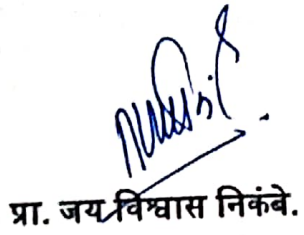 प्रा. जय विश्वास निकंबे.